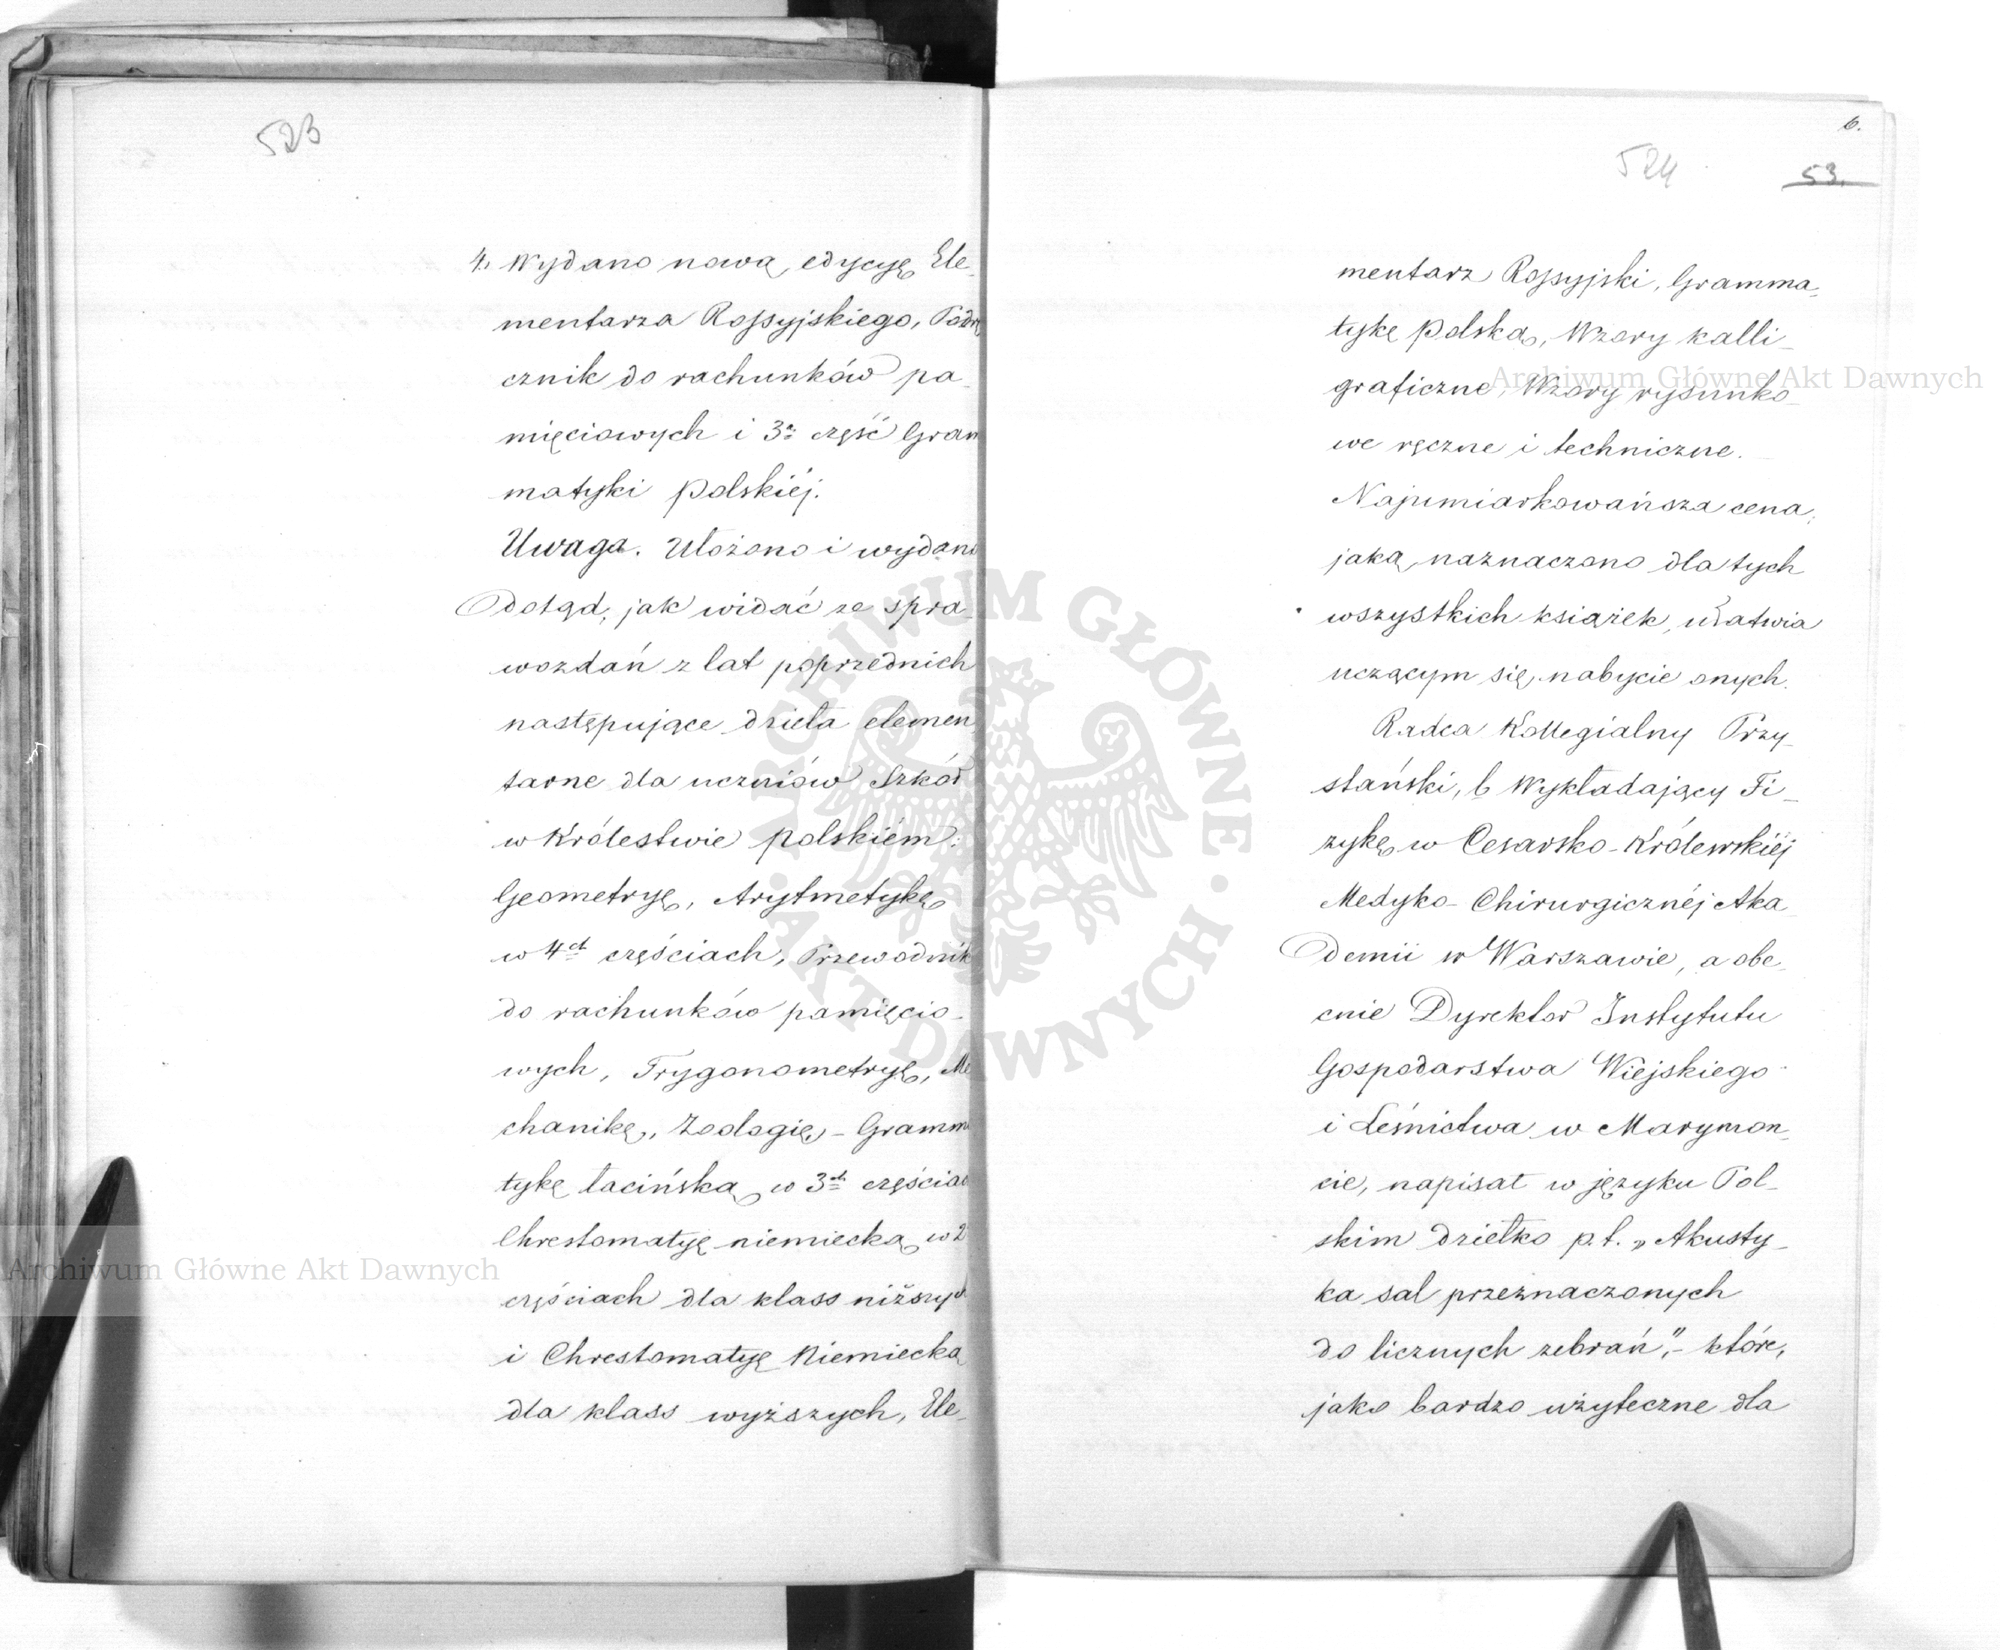 523
4. Wydano nową edycyę Ele-
mentarza Rossyjskiego, Podrę
cznik do rachunków pa-
mięciowych i 3ą część Gram
matyki polskiéj.
Uwaga. Ułożono i wydano
dotąd, jak widać ze spra-
wozdań z lat poprzednich
następujące dzieła elemen
tarne dla uczniów Szkół
w Królestwie polskiém:
Geometryę, Arytmetykę
w 4ch częściach, Przewodnik
do rachunków pamięcio-
wych, Trygonometryę, Me
chanikę, Zoologię, - Gramma
tykę łacińską w 3ch częściach
Chrestomatyę niemiecką w 2
częściach dla klass niższych
i Chrestomatyę Niemiecką
dla klass wyższych, Ele-
6.
524
53.
mentarz Rossyjski, Gramma-
tykę polską, Wzory kalli-
graficzne, Wzory rysunko-
we ręczne i techniczne.
Najumiarkowańsza cena,
jaką naznaczono dla tych
wszystkich książek, ułatwia
uczącym się nabycie onych.
Radca Kollegialny Przy-
stański, b. Wykładający Fi-
zykę w Cesarsko-Królewskiéj
Medyko-Chirurgicznéj Aka
demii w Warszawie, a obe-
cnie Dyrektor Instytutu
Gospodarstwa Wiejskiego
i Leśnictwa w Marymon-
cie, napisał w języku Pol-
skim dziełko p.t. „Akusty-
ka sal przeznaczonych
do licznych zebrań," - które,
jako bardzo użyteczne dla
Archiwum Główne Akt Dawnych
Archiwum Główne Akt Dawnych
ARCHIWUM GŁÓWNE
AKT DAWNYCH